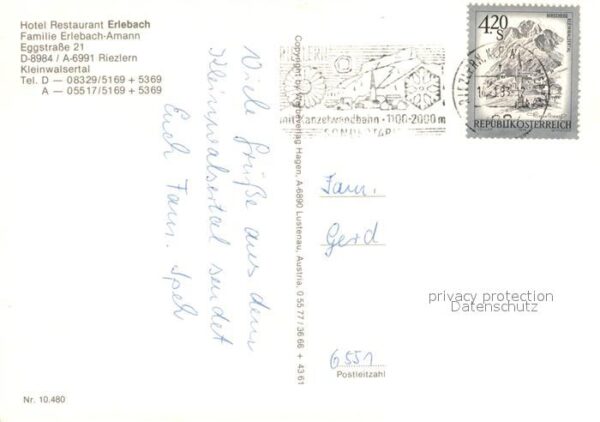 Hotel Restaurant Erlebach
Familie Erlebach-Amann
Eggstraße 21
D-8984 / A-6991 Riezlern
Kleinwalsertal
Tel. D — 08329/5169 + 5369
A — 05517/5169 + 5369
Viele Grüße aus dem
Kleinwalsertal sendet
Euch Fam. Speh
Nr. 10.480
Copyright by Werbeverlag Hagen, A-6890 Lustenau, Austria, 0 55 77 / 36 66 + 43 61
RIEZLERN
mit Kanzelwandbahn - 1100-2000 m
4.20
S
REPUBLIK ÖSTERREICH
Fam.
Gerd
privacy protection
Datenschutz
6551
Postleitzahl